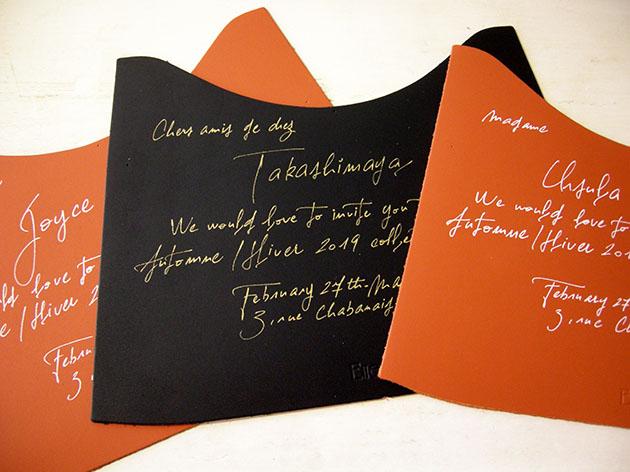 Joyce
ld love to
/Hiver 2
February
3,
Chers amis de chez
Takashimaya
We would love to invite you
Automne/Hiver 2019 colle
February 27th-Ma
3, rue Chabanais
Madame
We would love to
Automne/Hiver 201
February 27
3, rue Ch